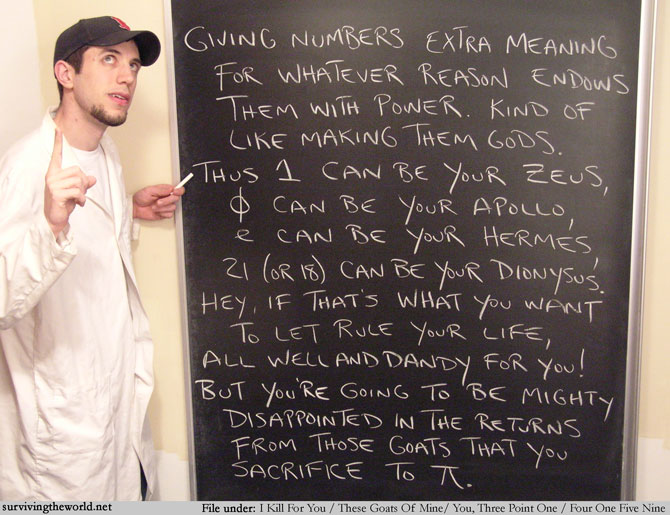 GIVING NUMBERS EXTRA MEANING
FOR WHATEVER REASON ENDOWS
THEM WITH POWER. KIND OF
LIKE MAKING THEM GODS.
THUS 1 CAN BE YOUR ZEUS,
ϕ CAN BE YOUR APOLLO,
e CAN BE YOUR HERMES,
21 (OR 18) CAN BE YOUR DIONYSUS.
HEY, IF THAT'S WHAT YOU WANT
TO LET RULE YOUR LIFE,
ALL WELL AND DANDY FOR YOU!
BUT YOU'RE GOING TO BE MIGHTY
DISAPPOINTED IN THE RETURNS
FROM THOSE GOATS THAT YOU
SACRIFICE TO π.
survivingtheworld.net File under: I Kill For You / These Goats Of Mine/ You, Three Point One / Four One Five Nine